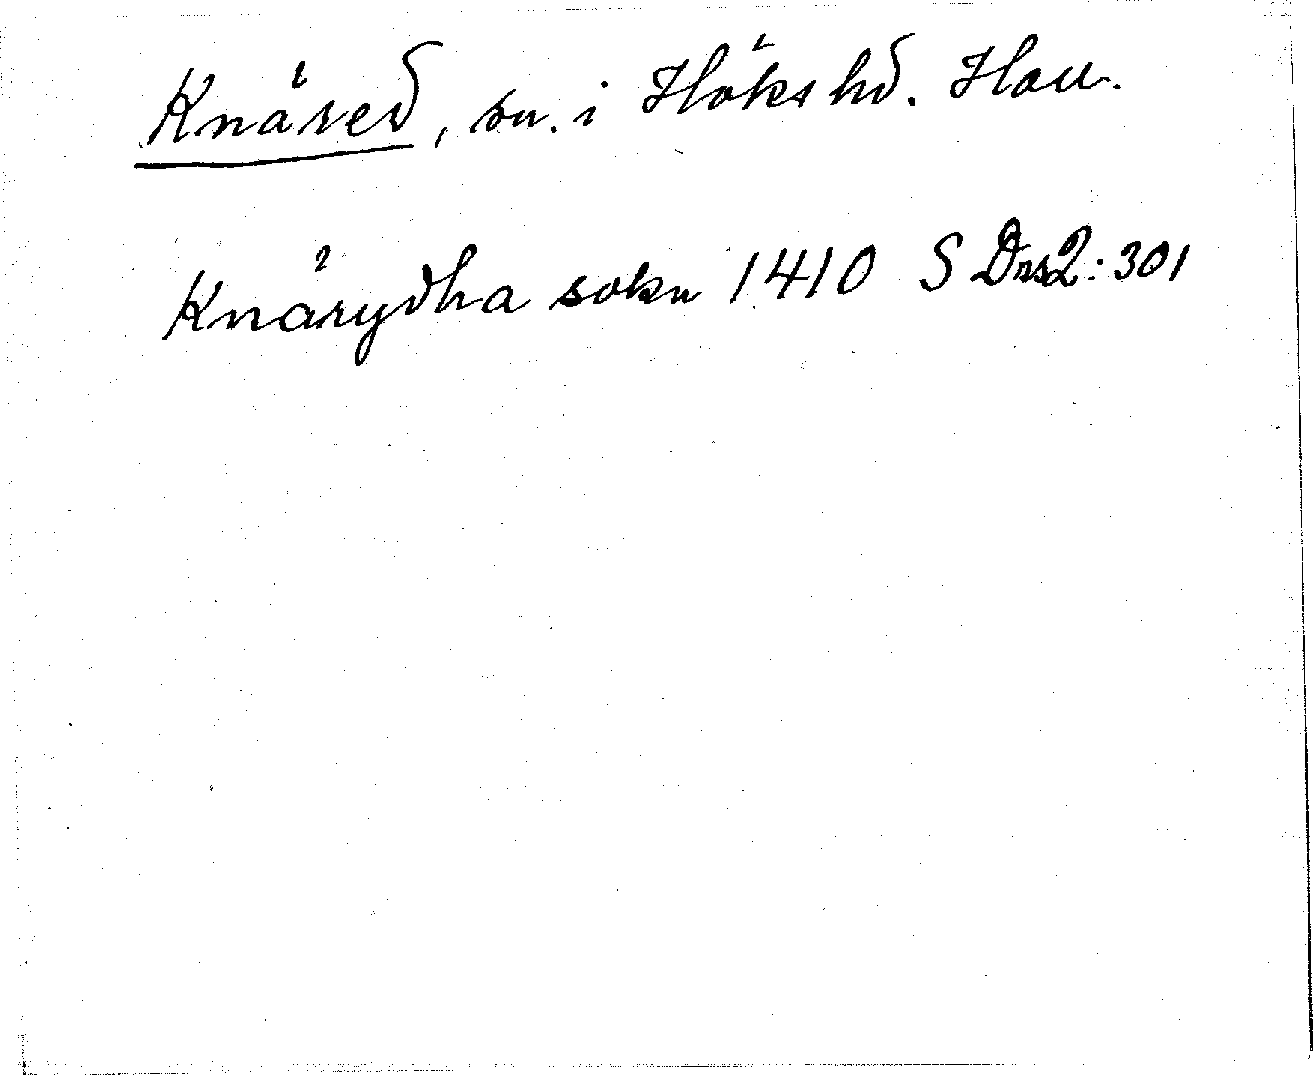 Knäred, sn. i Höks hd. Hall.
Knärydha sokn 1410 SDns2:301